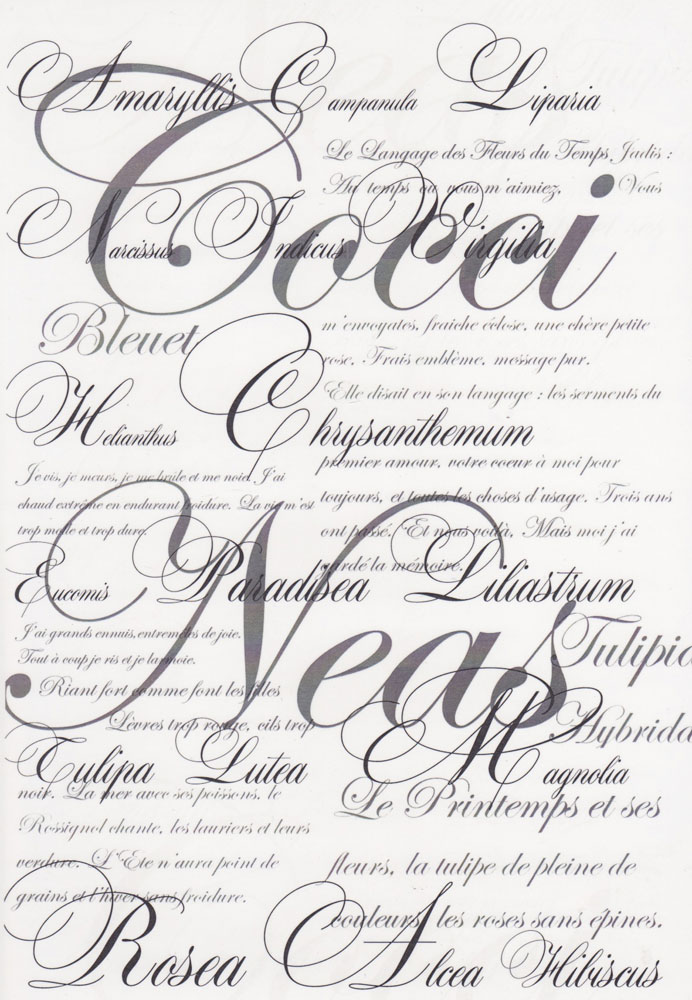 Amaryllis Campanula Liparia
Le Langage des Fleurs du Temps Jadis :
Au temps ou vous m'aimiez, Vous
Cocci
Narcissus Indicus Virgilia
Bleuet
m'envoyates, fraiche éclose, une chère petite
rose. Frais emblème, message pur.
Elle disait en son langage : les serments du
Helianthus Chrysanthemum
premier amour, votre coeur à moi pour
toujours, et toutes les choses d'usage. Trois ans
ont passé. Et nous voilà. Mais moi j'ai
gardé la mémoire.
Je vis, je meurs, je me brule et me noie. J'ai
chaud extrême en endurant froidure. La vie m'est
trop molle et trop dure.
Neas
Eucomis Paradisea Liliastrum
J'ai grands ennuis, entremêtés de joie.
Tout à coup je ris et je larmoie.
Riant fort comme font les filles
Lèvres trop rouge, cils trop
Tulipia
Hybrida
Tulipa Lutea Magnolia
noir. La mer avec ses poissons, le
Rossignol chante, les lauriers et leurs
verdure. L'Ete n'aura point de
grains et l'hiver sans froidure.
Le Printemps et ses
fleurs, la tulipe de pleine de
couleurs, les roses sans épines.
Rosea Alcea Hibiscus